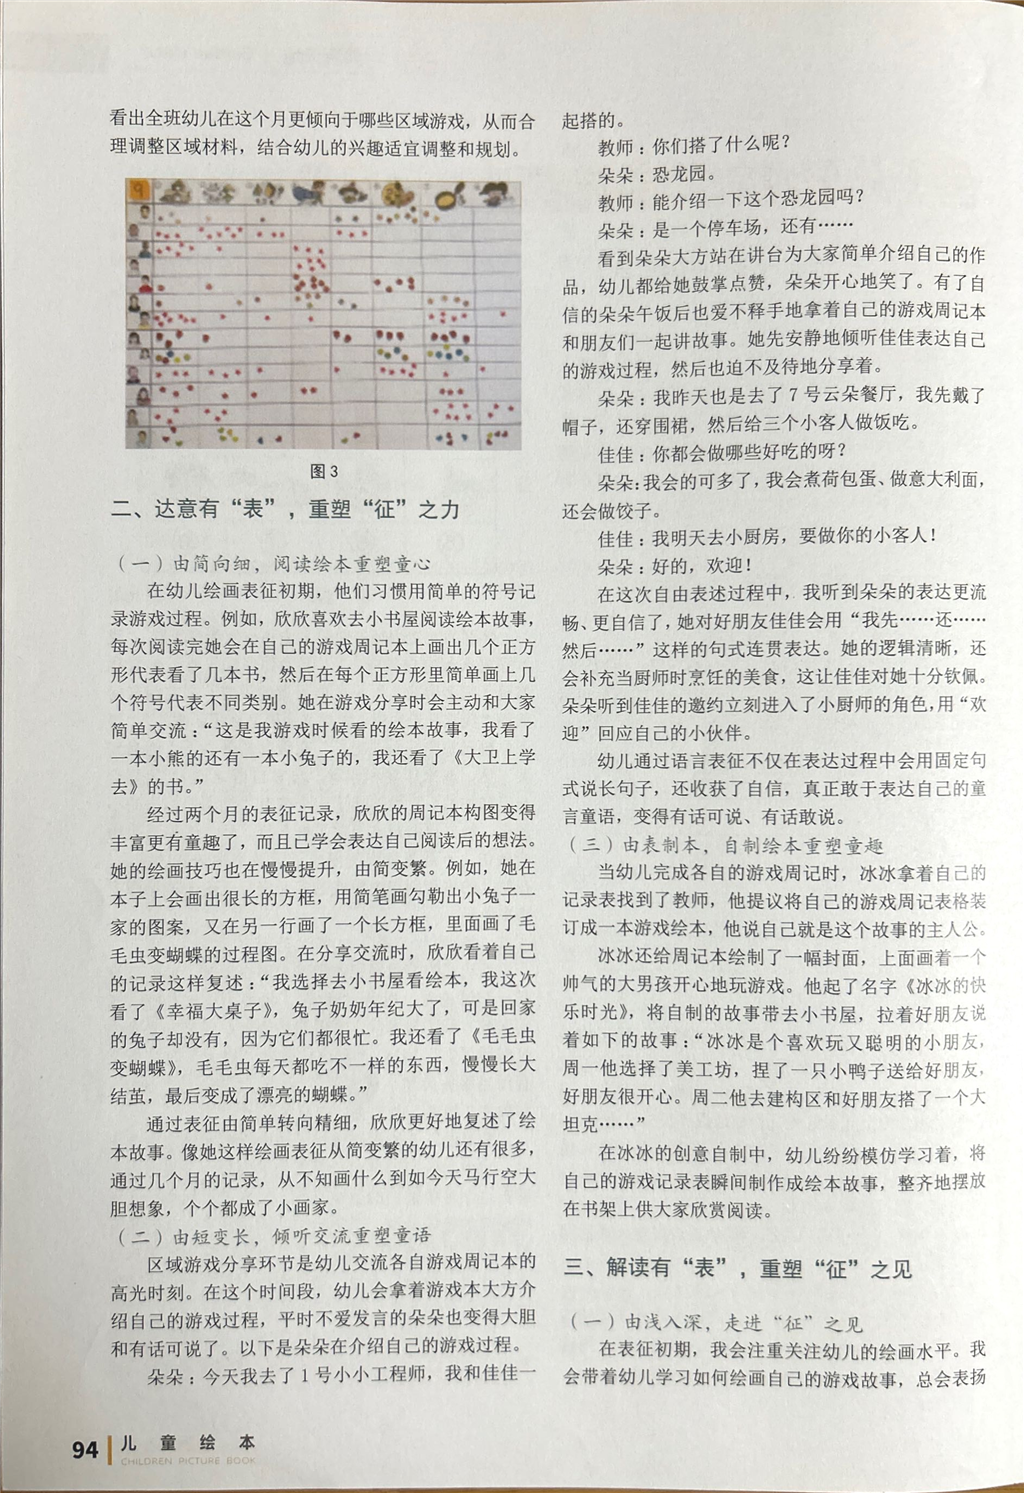 看出全班幼儿在这个月更倾向于哪些区域游戏，从而合
理调整区域材料，结合幼儿的兴趣适宜调整和规划。
9
图3
二、达意有“表”，重塑“征”之力
（一）由简向细，阅读绘本重塑童心
在幼儿绘画表征初期，他们习惯用简单的符号记
录游戏过程。例如，欣欣喜欢去小书屋阅读绘本故事，
每次阅读完她会在自己的游戏周记本上画出几个正方
形代表看了几本书，然后在每个正方形里简单画上几
个符号代表不同类别。她在游戏分享时会主动和大家
简单交流：“这是我游戏时候看的绘本故事，我看了
一本小熊的还有一本小兔子的，我还看了《大卫上学
去》的书。”
经过两个月的表征记录，欣欣的周记本构图变得
丰富更有童趣了，而且已学会表达自己阅读后的想法。
她的绘画技巧也在慢慢提升，由简变繁。例如，她在
本子上会画出很长的方框，用简笔画勾勒出小兔子一
家的图案，又在另一行画了一个长方框，里面画了毛
毛虫变蝴蝶的过程图。在分享交流时，欣欣看着自己
的记录这样复述：“我选择去小书屋看绘本，我这次
看了《幸福大桌子》，兔子奶奶年纪大了，可是回家
的兔子却没有，因为它们都很忙。我还看了《毛毛虫
变蝴蝶》，毛毛虫每天都吃不一样的东西，慢慢长大
结茧，最后变成了漂亮的蝴蝶。”
通过表征由简单转向精细，欣欣更好地复述了绘
本故事。像她这样绘画表征从简变繁的幼儿还有很多，
通过几个月的记录，从不知画什么到如今天马行空大
胆想象，个个都成了小画家。
（二）由短变长，倾听交流重塑童语
区域游戏分享环节是幼儿交流各自游戏周记本的
高光时刻。在这个时间段，幼儿会拿着游戏本大方介
绍自己的游戏过程，平时不爱发言的朵朵也变得大胆
和有话可说了。以下是朵朵在介绍自己的游戏过程。
朵朵：今天我去了1号小小工程师，我和佳佳一
起搭的。
教师：你们搭了什么呢？
朵朵：恐龙园。
教师：能介绍一下这个恐龙园吗？
朵朵：是一个停车场，还有……
看到朵朵大方站在讲台为大家简单介绍自己的作
品，幼儿都给她鼓掌点赞，朵朵开心地笑了。有了自
信的朵朵午饭后也爱不释手地拿着自己的游戏周记本
和朋友们一起讲故事。她先安静地倾听佳佳表达自己
的游戏过程，然后也迫不及待地分享着。
朵朵：我昨天也是去了7号云朵餐厅，我先戴了
帽子，还穿围裙，然后给三个小客人做饭吃。
佳佳：你都会做哪些好吃的呀？
朵朵：我会的可多了，我会煮荷包蛋、做意大利面，
还会做饺子。
佳佳：我明天去小厨房，要做你的小客人！
朵朵：好的，欢迎！
在这次自由表述过程中，我听到朵朵的表达更流
畅、更自信了，她对好朋友佳佳会用“我先……还……
然后……”这样的句式连贯表达。她的逻辑清晰，还
会补充当厨师时烹饪的美食，这让佳佳对她十分钦佩。
朵朵听到佳佳的邀约立刻进入了小厨师的角色，用“欢
迎”回应自己的小伙伴。
幼儿通过语言表征不仅在表达过程中会用固定句
式说长句子，还收获了自信，真正敢于表达自己的童
言童语，变得有话可说、有话敢说。
（三）由表制本，自制绘本重塑童趣
当幼儿完成各自的游戏周记时，冰冰拿着自己的
记录表找到了教师，他提议将自己的游戏周记表格装
订成一本游戏绘本，他说自己就是这个故事的主人公。
冰冰还给周记本绘制了一幅封面，上面画着一个
帅气的大男孩开心地玩游戏。他起了名字《冰冰的快
乐时光》，将自制的故事带去小书屋，拉着好朋友说
着如下的故事：“冰冰是个喜欢玩又聪明的小朋友，
周一他选择了美工坊，捏了一只小鸭子送给好朋友，
好朋友很开心。周二他去建构区和好朋友搭了一个大
坦克……”
在冰冰的创意自制中，幼儿纷纷模仿学习着，将
自己的游戏记录表瞬间制作成绘本故事，整齐地摆放
在书架上供大家欣赏阅读。
三、解读有“表”，重塑“征”之见
（一）由浅入深，走进“征”之见
在表征初期，我会注重关注幼儿的绘画水平。我
会带着幼儿学习如何绘画自己的游戏故事，总会表扬
94 儿童绘本
CHILDREN PICTURE BOOK